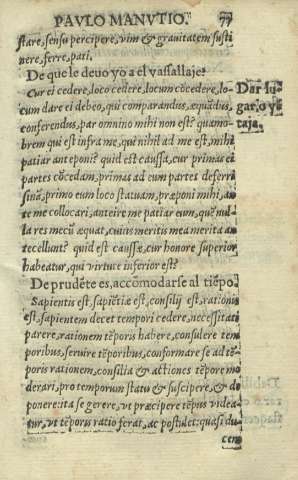 PAVLO MANVTIO. 77
stare, sensu percipere, vim & gravitatem susti
nere, ferre, pati.
De que le deuo yo a el vassallaje?
Cur ei cedere, loco cedere, locum cōcedere, lo-
cum dare ei debeo, qui comparandus, æquādus,
conferendus, par omnino mihi non est? quamo-
brem qui est infra me, qui nihil ad me est, mihi
patiar anteponi? quid est caussæ, cur primas ei
partes cōcedam, primas ad eum partes deferri
sinā, primo eum loco statuam, præponi mihi, an
te me collocari, anteire me patiar eum, quē nul
la res mecū æquat, cuius meritis mea merita an
tecellunt? quid est caussæ, cur honore superior
habeatur, qui virtute inferior est?
Dar lu-
gar, o vē
taja.
De prudēte es, accōmodarse al tiēpo.
Sapientis est, sapiētiæ est, consilij est, rationis
est, sapientem decet tempori cedere, necessitati
parere, rationem tēporis habere, consulere tem
poribus, servire tēporibus, conformare se ad tē-
poris rationem, consilia & actiones tēpore mo
derari, pro temporum statu & suscipere, & de
ponere: ita se gerere, vt præcipere tēpus videa-
tur, vt tēporis ratio ferat, ac postulet: quasi du
cem